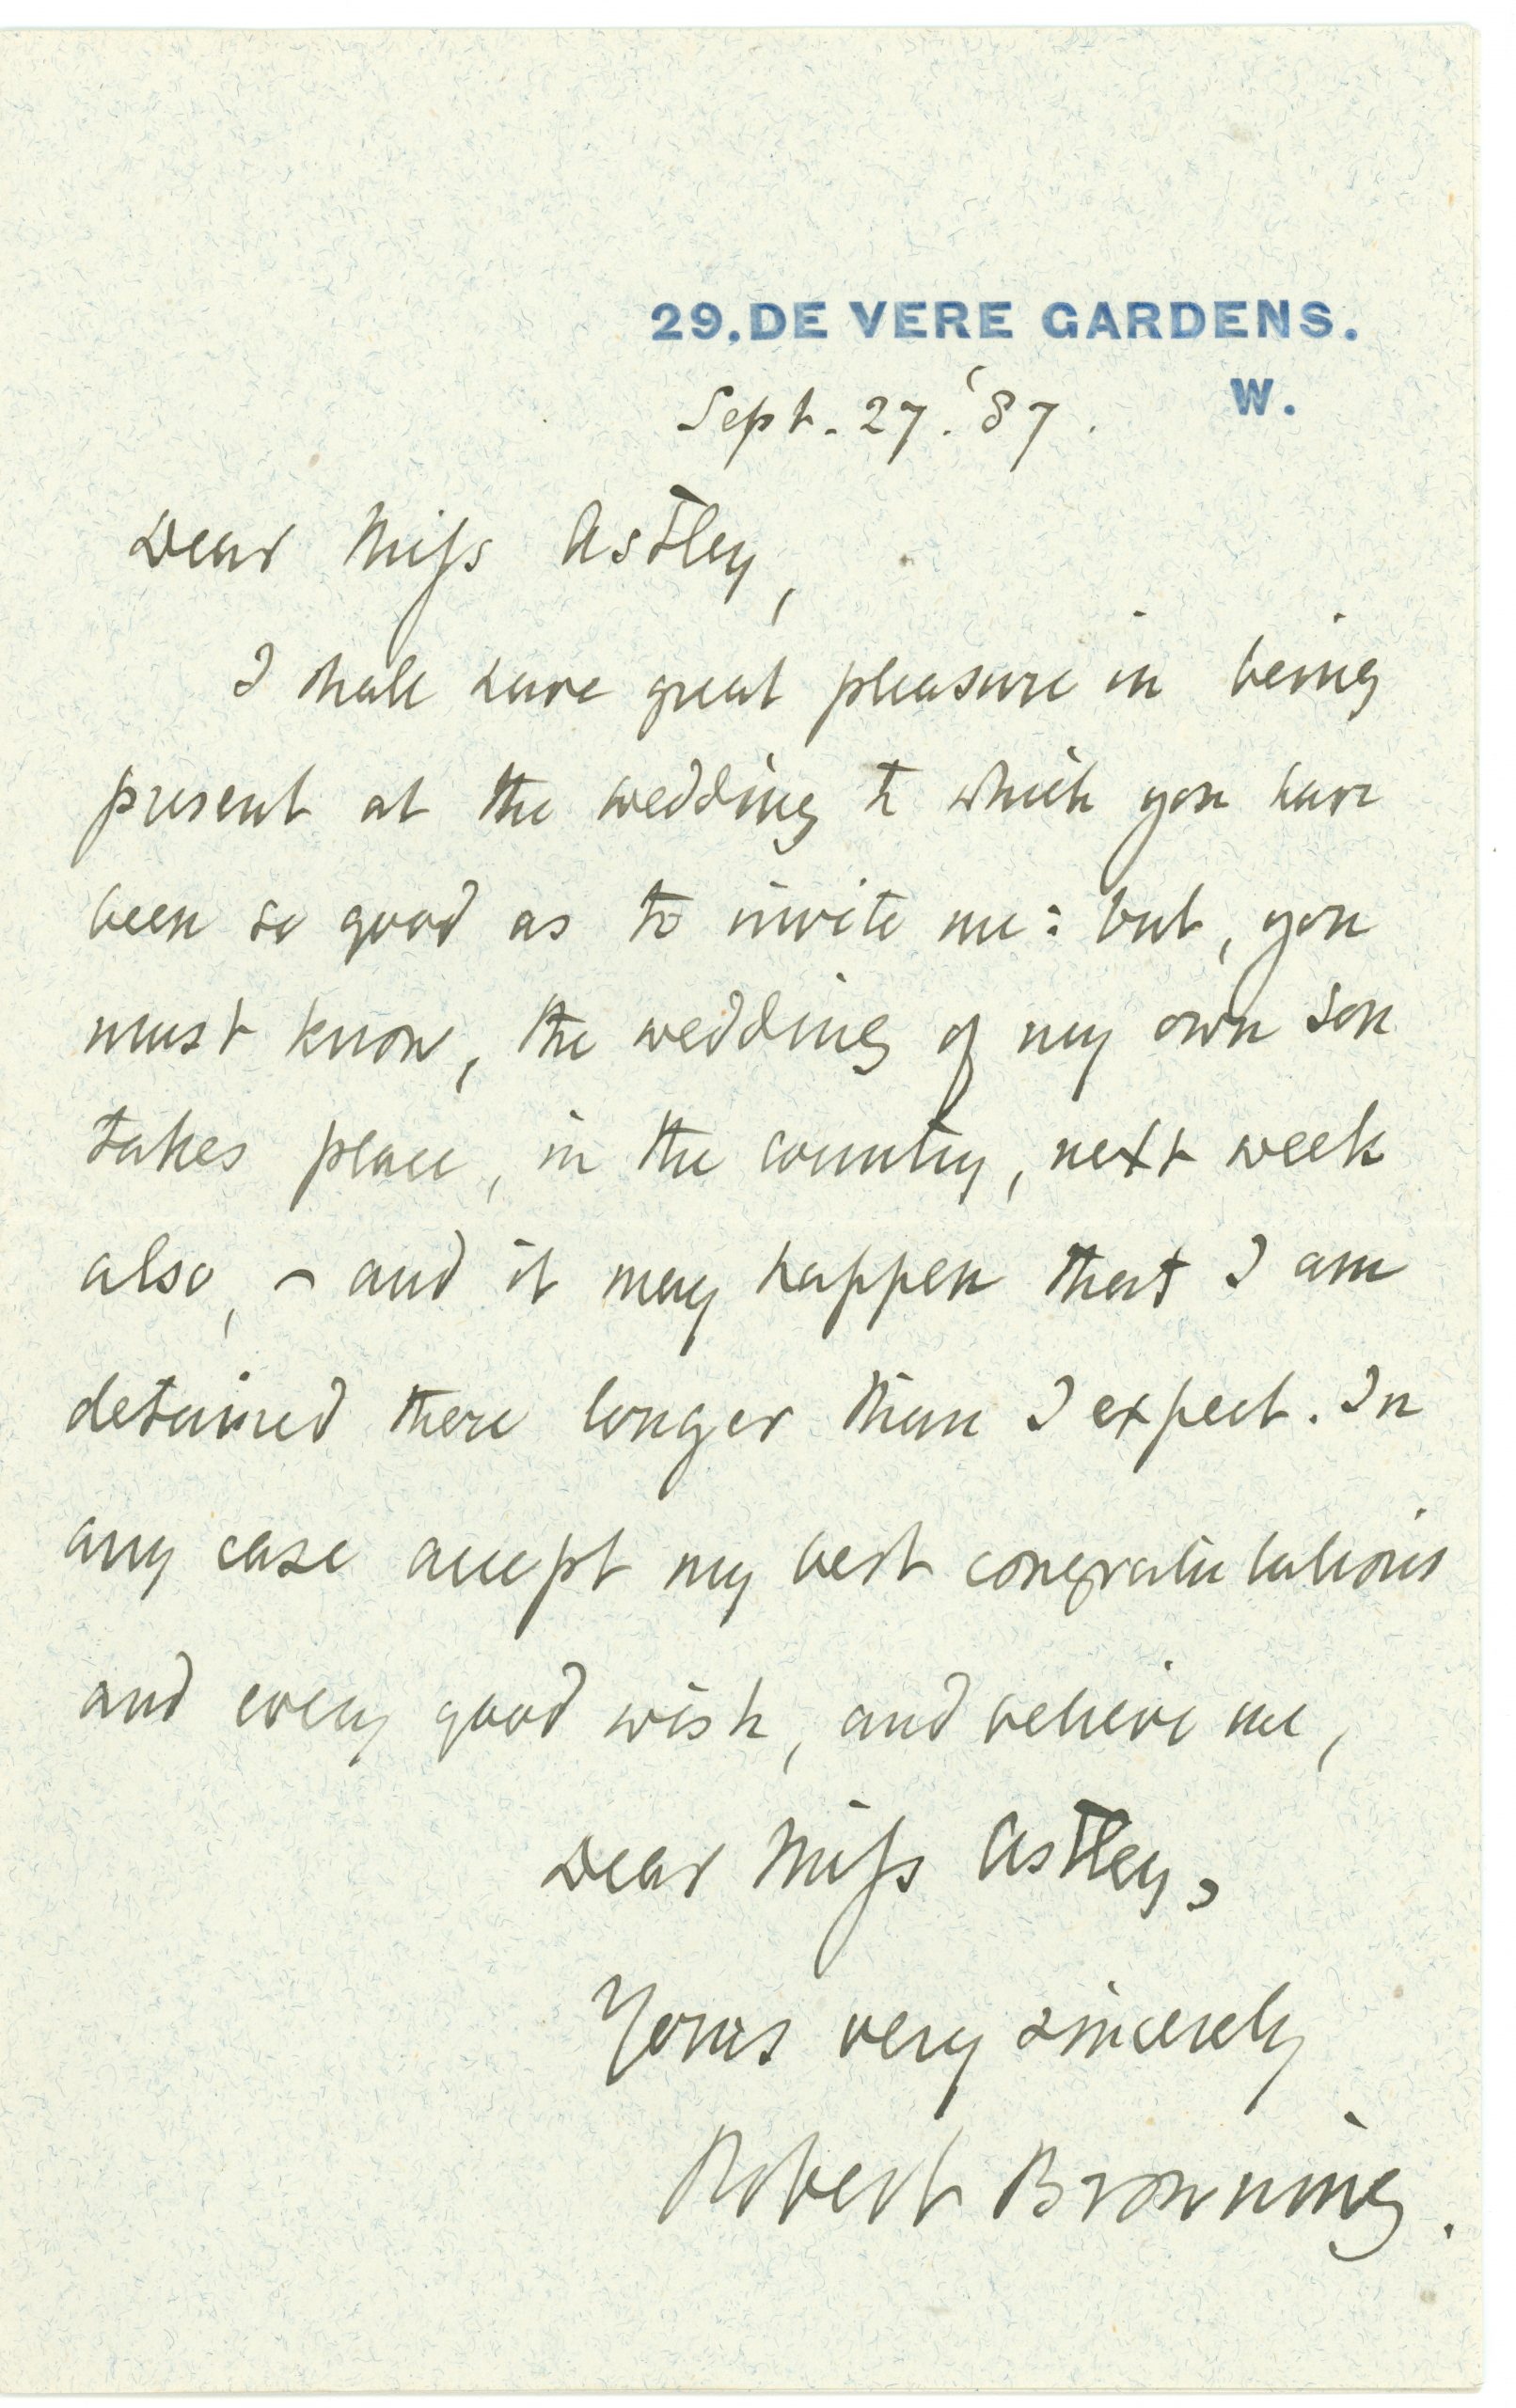 29, DE VERE GARDENS.
W.
Sept. 27. '87.
Dear Miss Astley,
I shall have great pleasure in being
present at the wedding to which you have
been so good as to invite me: but, you
must know, the wedding of my own son
takes place, in the country, next week
also, - and it may happen that I am
detained there longer than I expect. In
any case accept my best congratulations
and every good wish, and believe me,
Dear Miss Astley,
Yours very sincerely
Robert Browning.